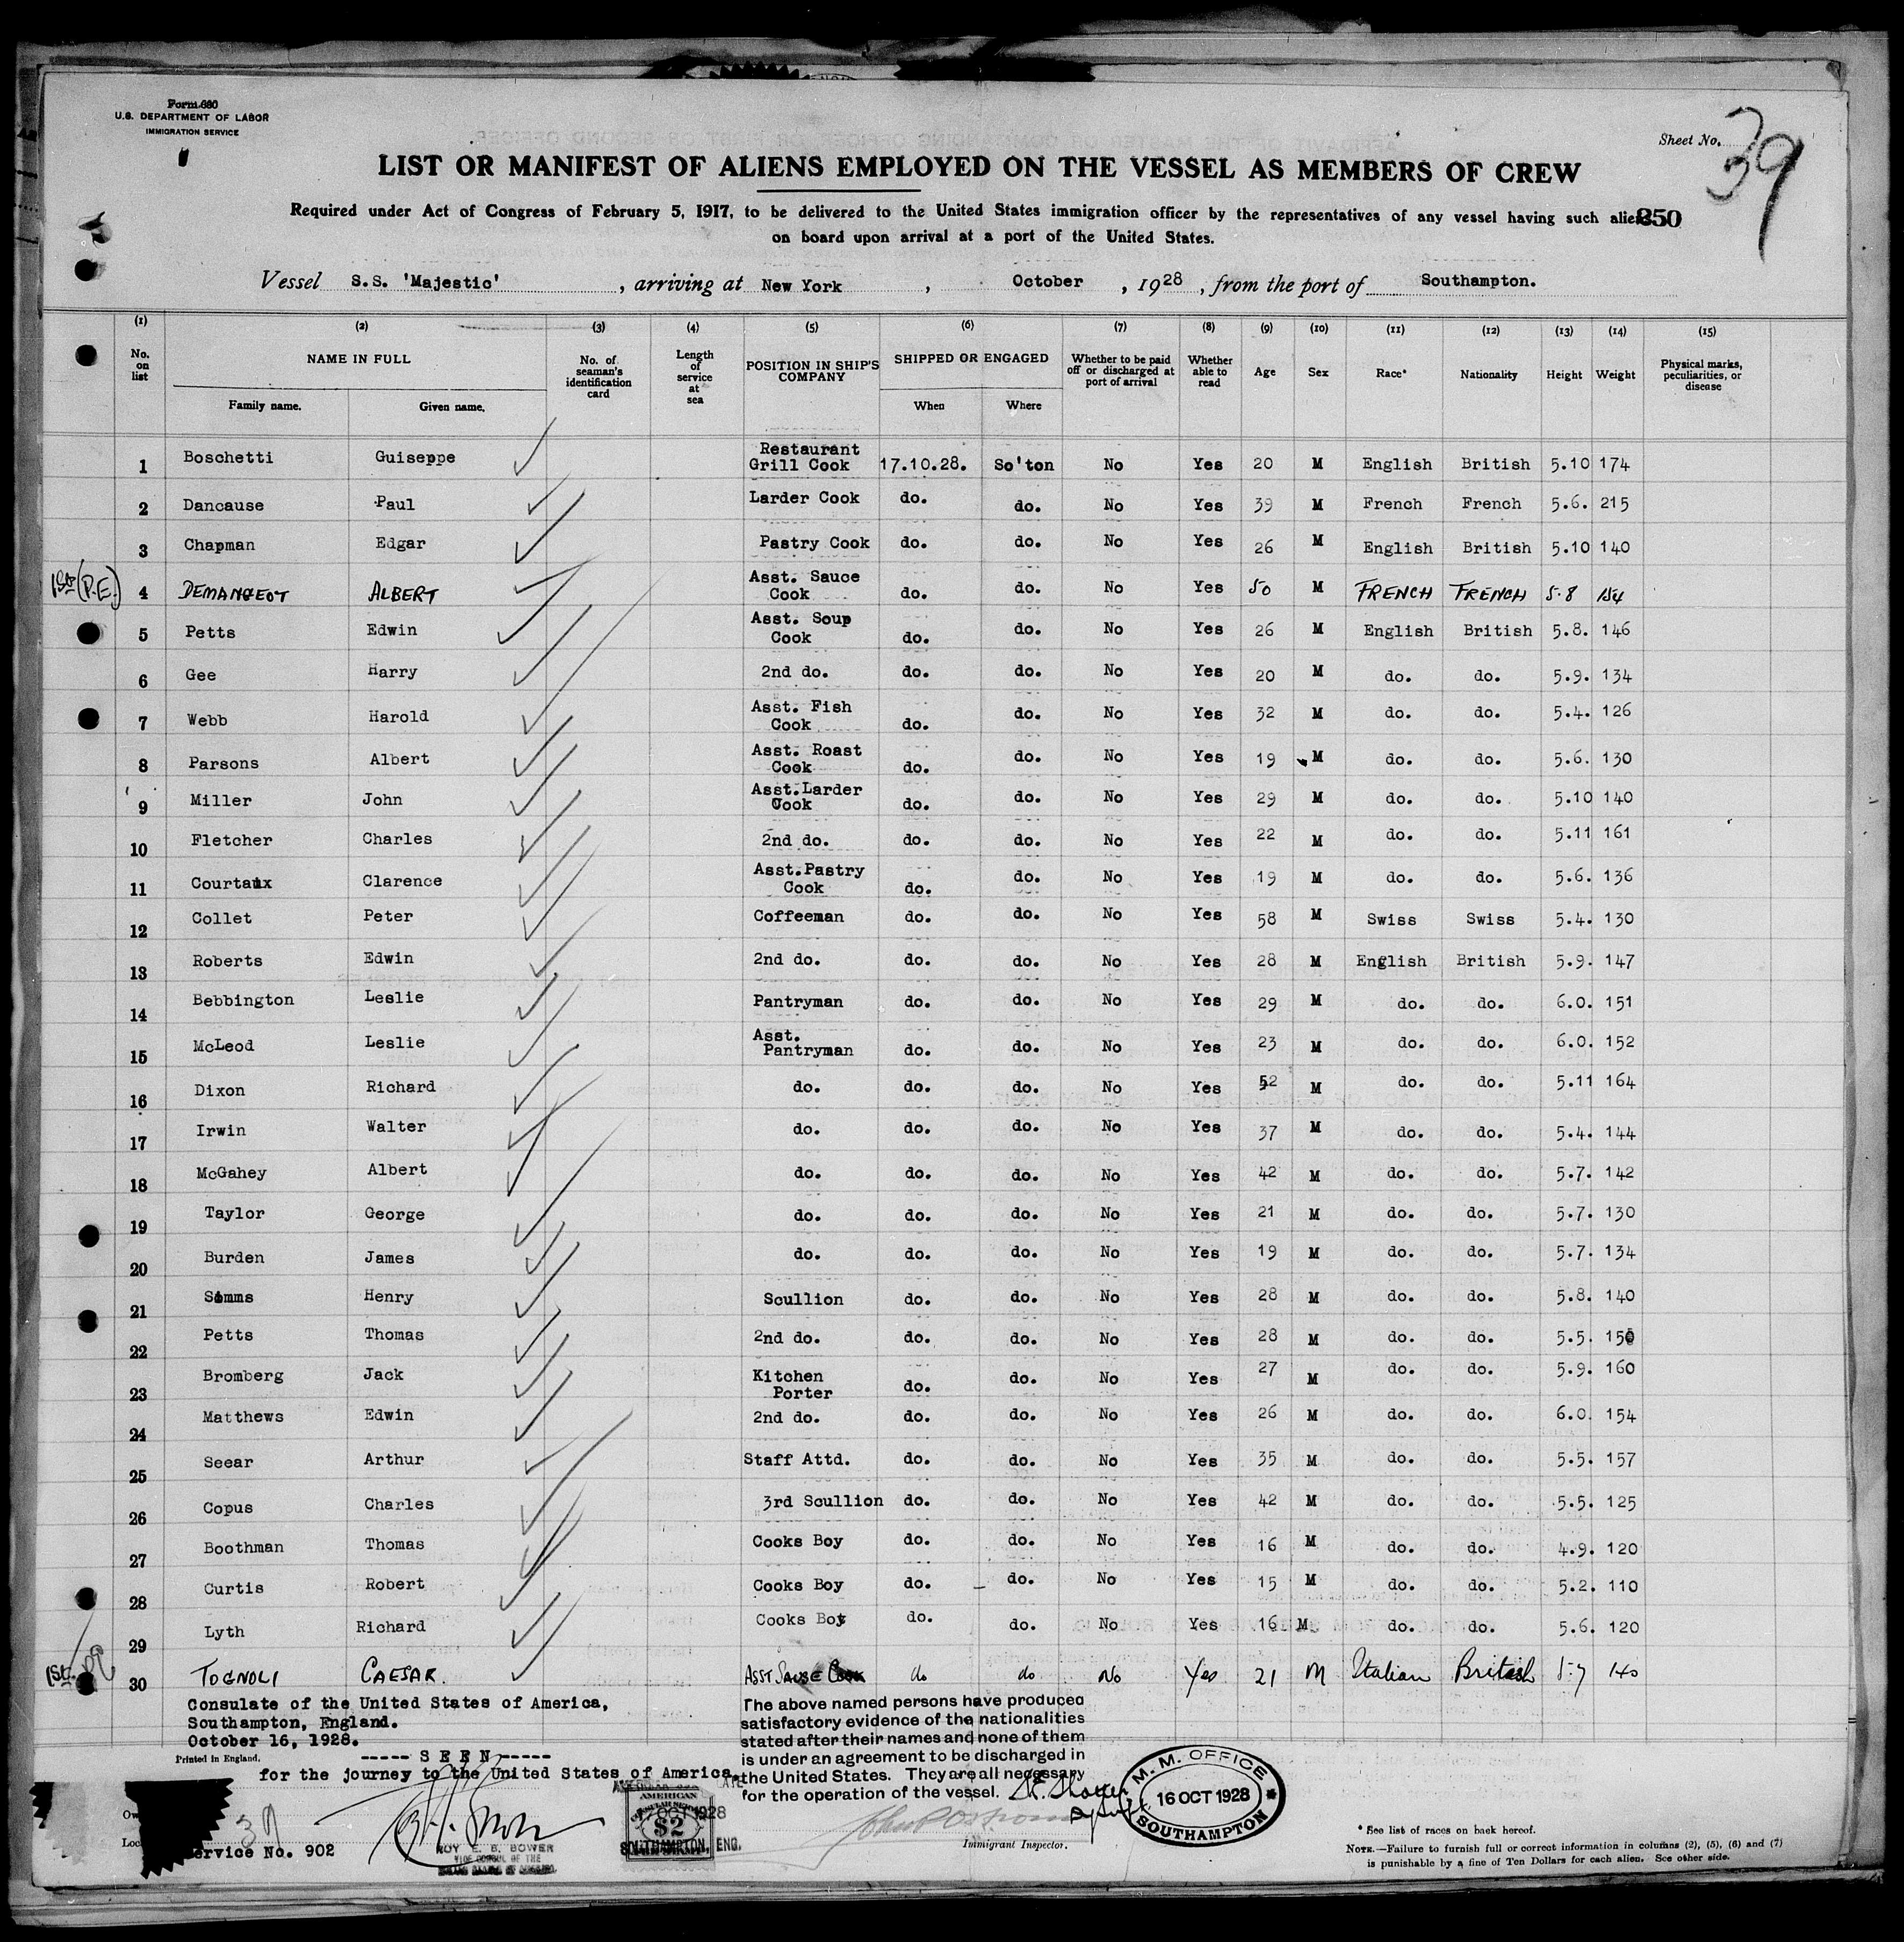 Form 680
U.S. DEPARTMENT OF LABOR
IMMIGRATION SERVICE
Sheet No. 39
LIST OR MANIFEST OF ALIENS EMPLOYED ON THE VESSEL AS MEMBERS OF CREW
Required under Act of Congress of February 5, 1917, to be delivered to the United States immigration officer by the representatives of any vessel having such aliens
on board upon arrival at a port of the United States.
350
Vessel S.S. 'Majestic', arriving at New York, October, 1928, from the port of Southampton.
(1) (2) (3) (4) (5) (6) (7) (8) (9) (10) (11) (12) (13) (14) (15)
No. on list NAME IN FULL Family name. Given name. No. of seaman's identification card Length of service at sea POSITION IN SHIP'S COMPANY SHIPPED OR ENGAGED When Where Whether to be paid off or discharged at port of arrival Whether able to read Age Sex Race* Nationality Height Weight Physical marks, peculiarities, or disease
1 Boschetti Guiseppe Restaurant Grill Cook 17.10.28. So'ton No Yes 20 M English British 5.10 174
2 Dancause Paul Larder Cook do. do. No Yes 39 M French French 5.6. 215
3 Chapman Edgar Pastry Cook do. do. No Yes 26 M English British 5.10 140
1st (P.E.) 4 DEMANGEOT ALBERT Asst. Sauce Cook do. do. No Yes 50 M FRENCH FRENCH 5.8 154
5 Petts Edwin Asst. Soup Cook do. do. No Yes 26 M English British 5.8. 146
6 Gee Harry 2nd do. do. do. No Yes 20 M do. do. 5.9. 134
7 Webb Harold Asst. Fish Cook do. do. No Yes 32 M do. do. 5.4. 126
8 Parsons Albert Asst. Roast Cook do. do. No Yes 19 M do. do. 5.6. 130
9 Miller John Asst.Larder Cook do. do. No Yes 29 M do. do. 5.10 140
10 Fletcher Charles 2nd do. do. do. No Yes 22 M do. do. 5.11 161
11 Courtaux Clarence Asst.Pastry Cook do. do. No Yes 19 M do. do. 5.6. 136
12 Collet Peter Coffeeman do. do. No Yes 58 M Swiss Swiss 5.4. 130
13 Roberts Edwin 2nd do. do. do. No Yes 28 M English British 5.9. 147
14 Bebbington Leslie Pantryman do. do. No Yes 29 M do. do. 6.0. 151
15 McLeod Leslie Asst. Pantryman do. do. No Yes 23 M do. do. 6.0. 152
16 Dixon Richard do. do. do. No Yes 52 M do. do. 5.11 164
17 Irwin Walter do. do. do. No Yes 37 M do. do. 5.4. 144
18 McGahey Albert do. do. do. No Yes 42 M do. do. 5.7. 142
19 Taylor George do. do. do. No Yes 21 M do. do. 5.7. 130
20 Burden James do. do. do. No Yes 19 M do. do. 5.7. 134
21 Simms Henry Scullion do. do. No Yes 28 M do. do. 5.8. 140
22 Petts Thomas 2nd do. do. do. No Yes 28 M do. do. 5.5. 150
23 Bromberg Jack Kitchen Porter do. do. No Yes 27 M do. do. 5.9. 160
24 Matthews Edwin 2nd do. do. do. No Yes 26 M do. do. 6.0. 154
25 Seear Arthur Staff Attd. do. do. No Yes 35 M do. do. 5.5. 157
26 Copus Charles 3rd Scullion do. do. No Yes 42 M do. do. 5.5. 125
27 Boothman Thomas Cooks Boy do. do. No Yes 16 M do. do. 4.9. 120
28 Curtis Robert Cooks Boy do. do. No Yes 15 M do. do. 5.2. 110
29 Lyth Richard Cooks Boy do. do. No Yes 16 M do. do. 5.6. 120
1st. 30 TOGNOLI CAESAR. ASST SAUSE COOK do do No Yes 21 M Italian British 5.7 140
Consulate of the United States of America,
Southampton, England.
October 16, 1928.
Printed in England.
----- S E E N -----
for the journey to the United States of America.
The above named persons have produced
satisfactory evidence of the nationalities
stated after their names and none of them
is under an agreement to be discharged in
the United States. They are all necessary
for the operation of the vessel.
M. M. OFFICE
16 OCT 1928
SOUTHAMPTON
AMERICAN
$2
17 OCT 1928
SOUTHAMPTON, ENG.
39
Service No. 902
ROY E. B. BOWER
VICE CONSUL OF THE
Immigrant Inspector.
* See list of races on back hereof.
NOTE.—Failure to furnish full or correct information in columns (2), (5), (6) and (7)
is punishable by a fine of Ten Dollars for each alien. See other side.